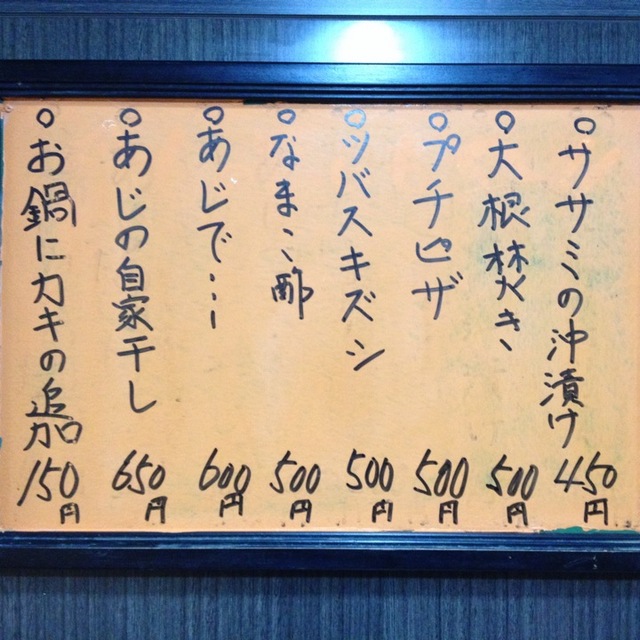 ○ササミの沖漬け 450円
○大根焚き 500円
○プチピザ 500円
○ツバスキズシ 500円
○なまこ酢 500円
○あじで…! 600円
○あじの自家干し 650円
○お鍋にカキの追加 150円